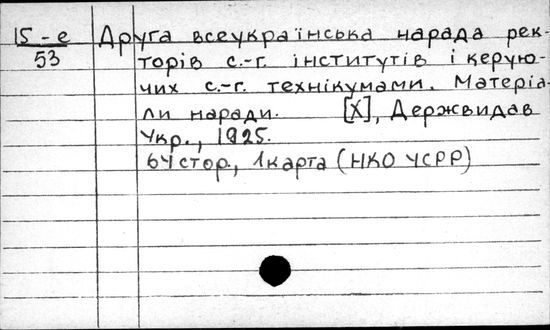 15-е Друга всеукраїнська нарада рек-
53 торів с.-г. інститутів і керую-
чих с.-г. технікумами. Матеріа-
ли наради. [Х], Держвидав
Укр., 1925.
64 стор., 1 карта (НКО УСРР)